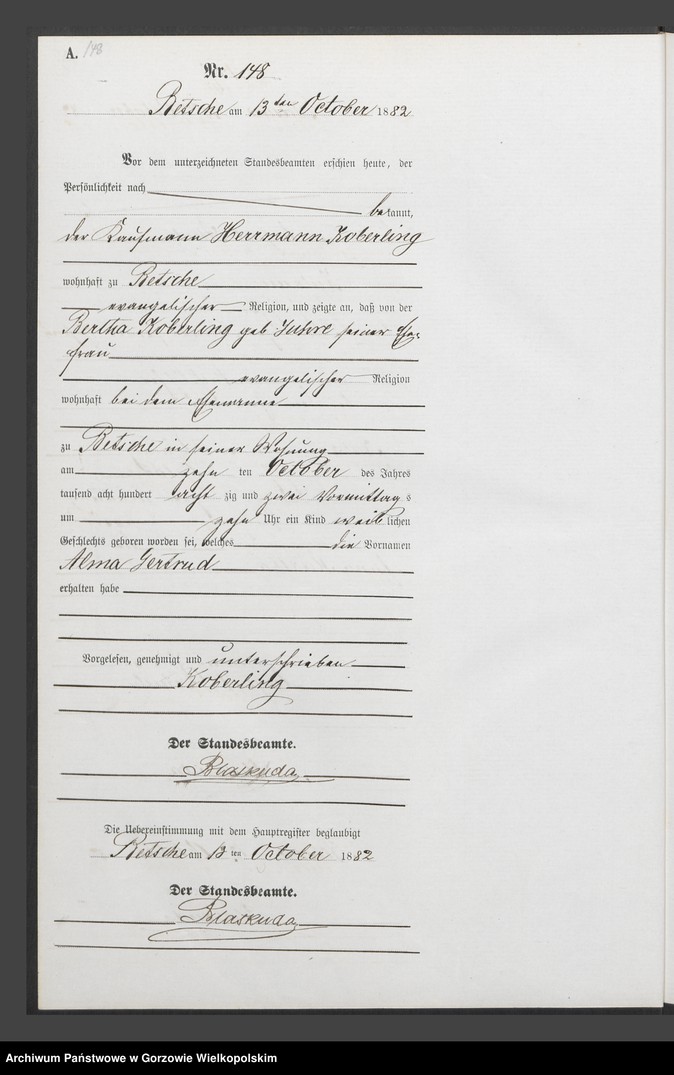 A. 148
Nr. 148
Betsche am 13ten October 1882
Vor dem unterzeichneten Standesbeamten erschien heute, der
Persönlichkeit nach
bekannt,
der Kaufmann Herrmann Koberling
wohnhaft zu Betsche
evangelischer Religion, und zeigte an, daß von der
Bertha Koberling geb. seiner Ehe-
frau
evangelischer Religion
wohnhaft bei dem Ehemanne
zu Betsche in seiner Wohnung
am zehn ten October des Jahres
tausend acht hundert acht zig und zwei Vormittag s
um zehn Uhr ein Kind weib lichen
Geschlechts geboren worden sei, welches die Vornamen
Alma Gertrud
erhalten habe
Vorgelesen, genehmigt und unterschrieben
Koberling
Der Standesbeamte.
Blaskuda
Die Uebereinstimmung mit dem Hauptregister beglaubigt
Betsche am 13 ten October 1882
Der Standesbeamte.
Blaskuda
Archiwum Państwowe w Gorzowie Wielkopolskim